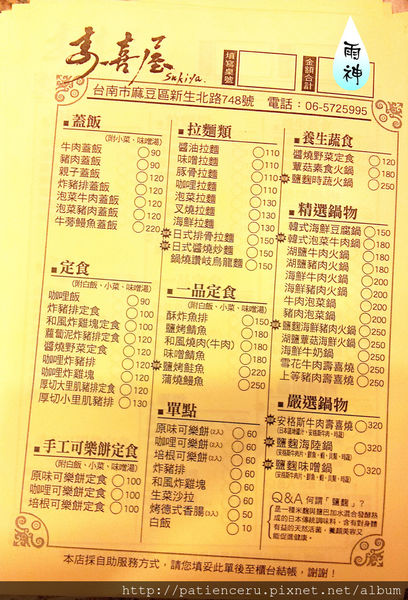 壽喜屋
Sukiya.
填寫桌號
金額合計
雨神
台南市麻豆區新生北路748號 電話:06-5725995
■蓋飯
(附小菜、味噌湯)
牛肉蓋飯 90
豬肉蓋飯 90
親子蓋飯 90
炸豬排蓋飯 120
泡菜牛肉蓋飯 120
泡菜豬肉蓋飯 120
牛蒡鰻魚蓋飯 220
■定食
(附白飯、小菜、味噌湯)
咖哩飯 90
炸豬排定食 100
和風炸雞塊定食 100
蘿蔔泥炸豬排定食 120
醬燒野菜定食 120
咖哩炸豬排 120
咖哩炸雞塊 120
厚切大里肌豬排定食 120
厚切小里肌豬排 130
■手工可樂餅定食
(附白飯、小菜、味噌湯)
原味可樂餅定食 100
咖哩可樂餅定食 100
培根可樂餅定食 100
■拉麵類
醬油拉麵 110
味噌拉麵 110
豚骨拉麵 110
咖哩拉麵 110
泡菜拉麵 110
叉燒拉麵 110
海鮮拉麵 150
日式排骨拉麵 150
日式醬燒炒麵 120
鍋燒讚岐烏龍麵 150
■一品定食
(附白飯、小菜、味噌湯)
酥炸魚排 150
鹽烤鯖魚 180
和風燒肉(牛肉) 180
味噌鯖魚 180
鹽烤鮭魚 220
蒲燒鰻魚 250
■單點
原味可樂餅(2入) 60
咖哩可樂餅(2入) 60
培根可樂餅(2入) 60
炸豬排 60
和風炸雞塊 60
生菜沙拉 60
烤德式香腸(3入) 50
白飯 10
■養生蔬食
醬燒野菜定食 120
蕈菇素食火鍋 180
鹽麴時蔬火鍋 180
■精選鍋物
韓式海鮮豆腐鍋 150
韓式泡菜牛肉鍋 180
湖鹽豬肉火鍋 180
湖鹽牛肉火鍋 180
海鮮豬肉火鍋 200
海鮮牛肉火鍋 200
牛肉泡菜鍋 200
豬肉泡菜鍋 200
鹽麴海鮮豬肉火鍋 250
湖鹽蕈菇海鮮火鍋 250
海鮮牛奶鍋 250
雪花牛肉壽喜燒 250
上等豬肉壽喜燒 250
■嚴選鍋物
安格斯牛肉壽喜燒 320
鹽麴海陸鍋 320
鹽麴味噌鍋 320
Q&A 何謂「鹽麴」?
是一種米麴與鹽巴加水混合發酵熟
成的日本傳統調味料,含有對身體
有益的天然活菌,養顏美容又
能促進健康。
本店採自助服務方式,請您填妥此單後至櫃台結帳,謝謝!
http://patienceru.pixnet.net/album